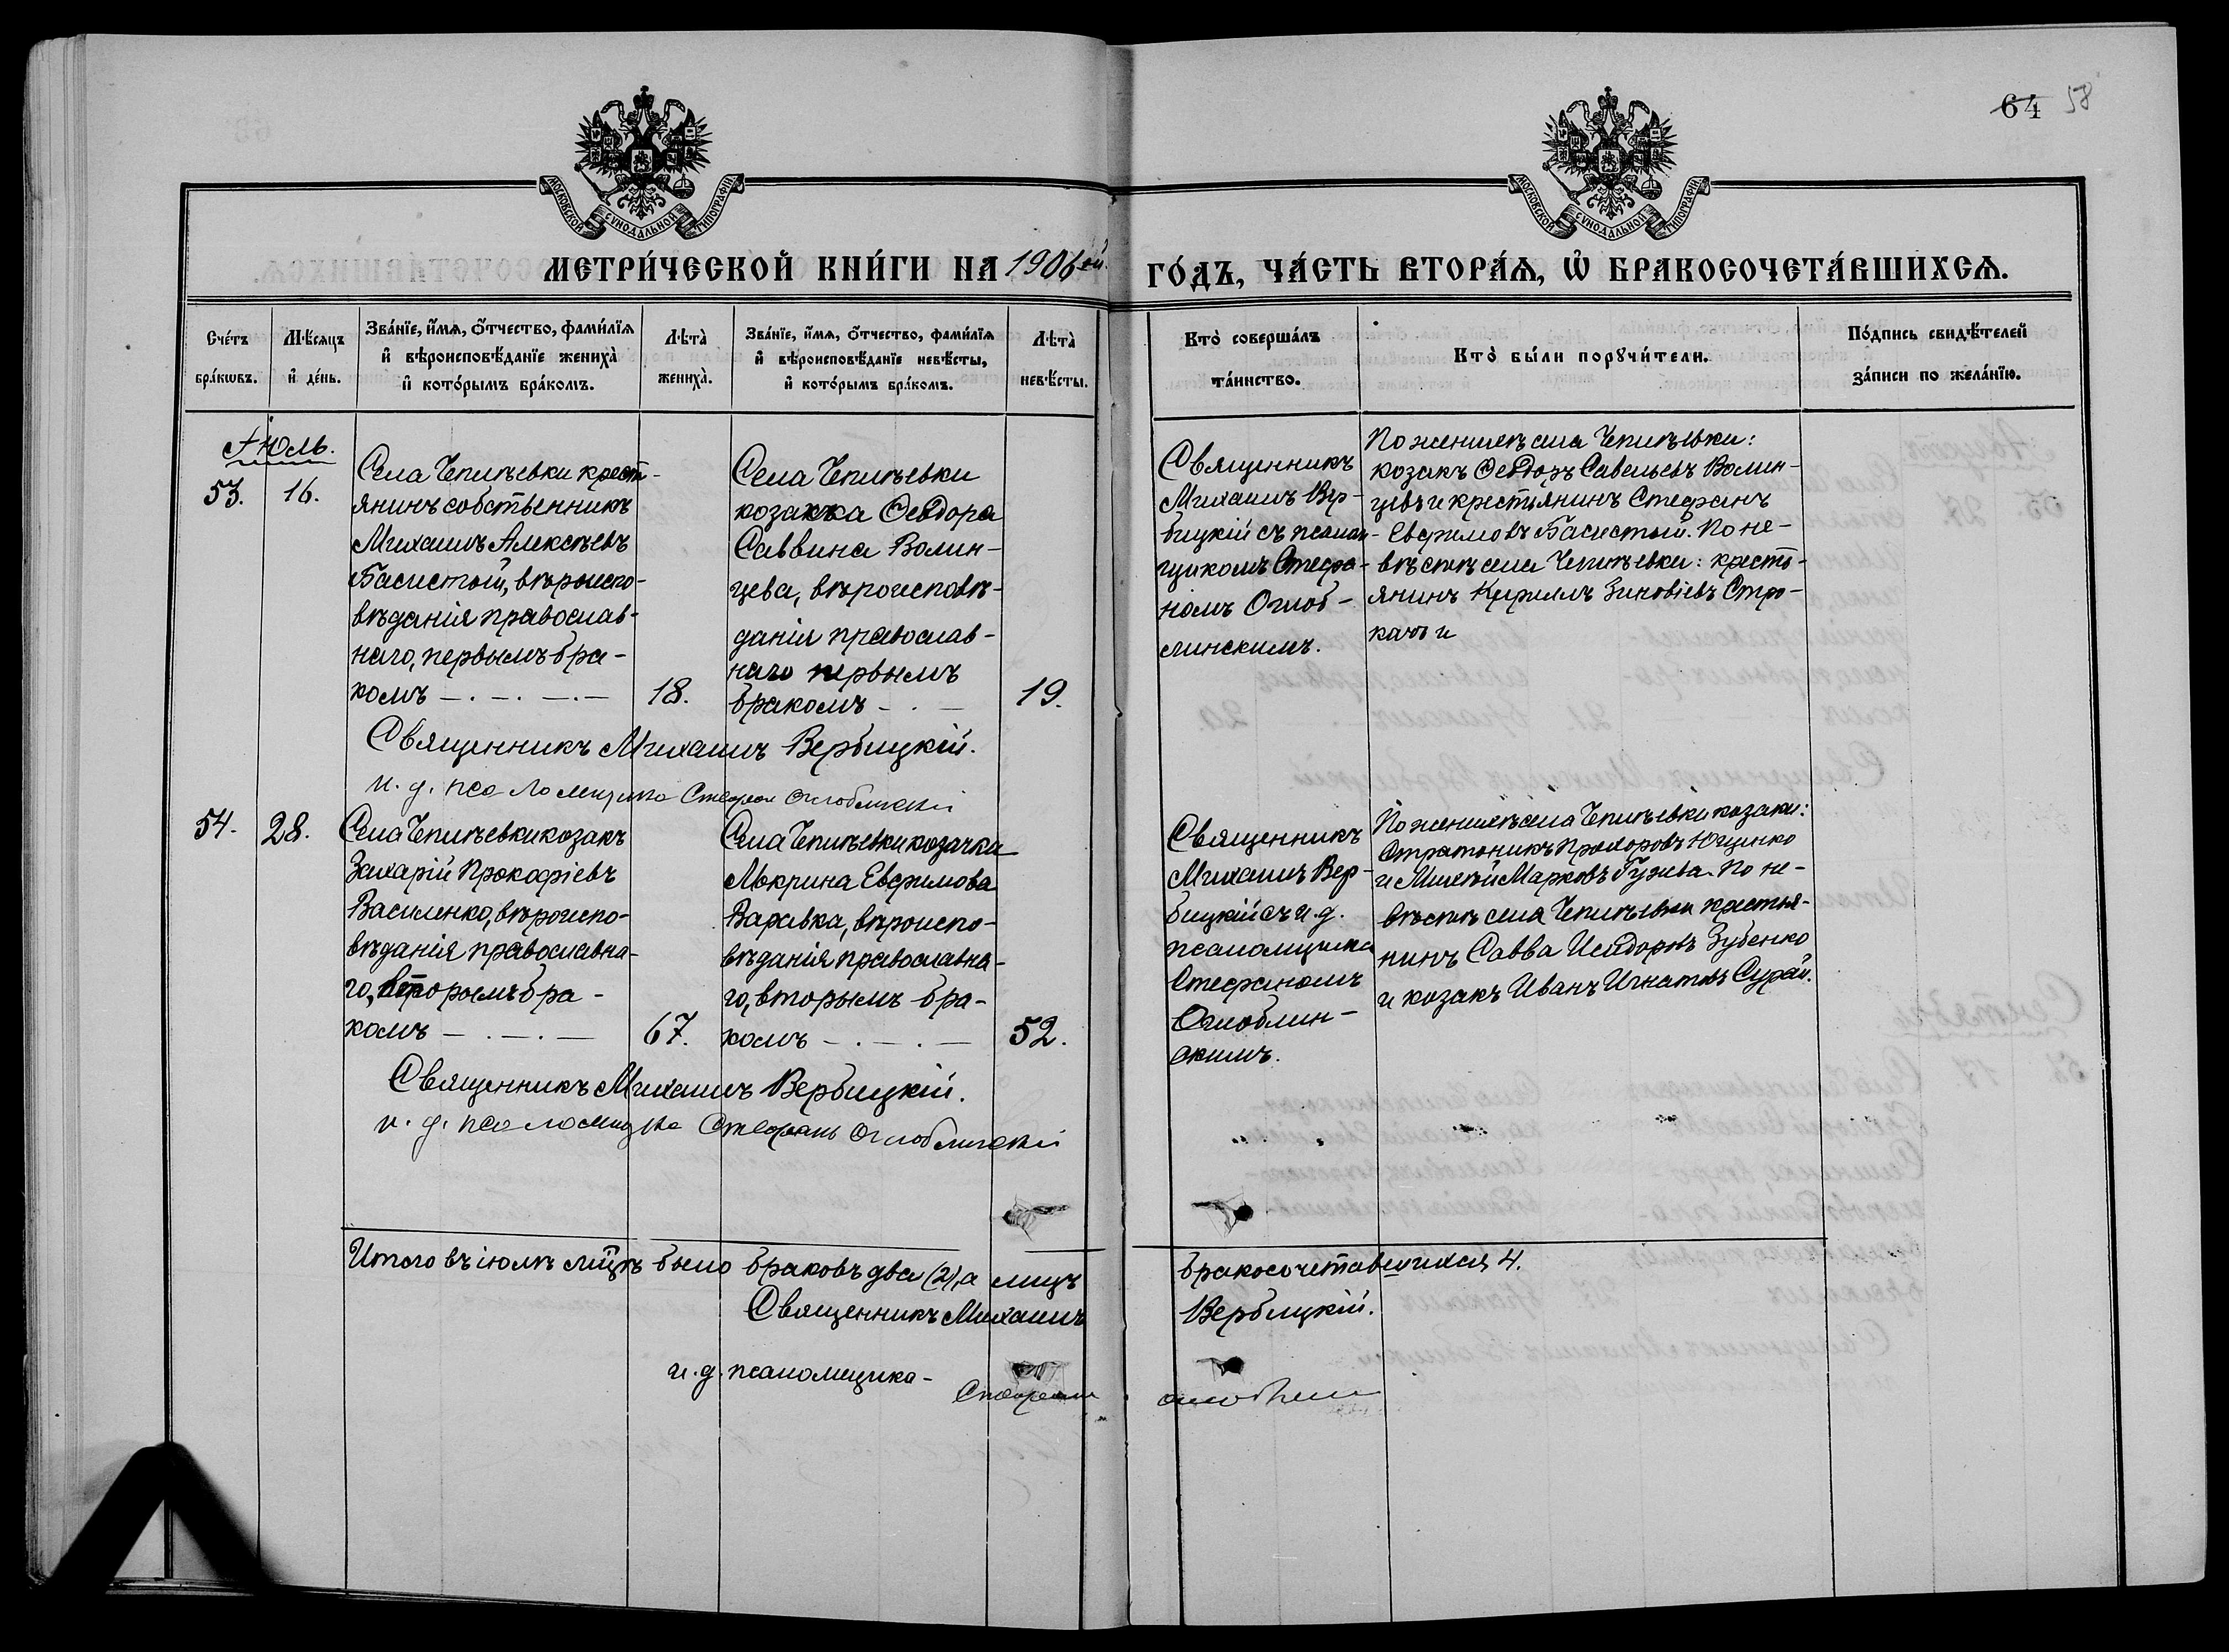 64 58
МОСКОВСКОЙ СѴНОДАЛЬНОЙ ТИПОГРАФІИ.
МОСКОВСКОЙ СѴНОДАЛЬНОЙ ТИПОГРАФІИ.
МЕТРИ́ЧЕСКОЙ КНИ́ГИ НА 1906-ой
ГО́ДЪ, ЧА́СТЬ ВТОРА́Ѧ, Ѽ БРАКОСОЧЕТА́ВШИХСѦ.
Сче́тъ
бра́кѡвъ.
Мѣ́сяцъ
и҆ де́нь.
Зва́нїе, и҆́мѧ, ѻ҆́тчество, фами́лїѧ
и҆ вѣроисповѣ́данїе жениха̀
и҆ кото́рымъ бра́комъ.
Лѣта̀
жениха̀.
Зва́нїе, и҆́мѧ, ѻ҆́тчество, фами́лїѧ
и҆ вѣроисповѣ́данїе невѣ́сты,
и҆ кото́рымъ бра́комъ.
Лѣта̀
невѣ́сты.
Кто̀ соверша́лъ
та́инство.
Кто̀ бы́ли порꙋчи́тели.
По́дпись свидѣ́телей
за́писи по жела́нїю.
Іюль.
53.
16.
Села Чепилѣевки крест-
янинъ собственникъ
Михаилъ Алексѣевъ
Басистый, вѣроиспо-
вѣданія православ-
наго, первымъ бра-
комъ
18.
Села Чепилѣевки
козачка Ѳеодора
Саввина Волин-
цева, вѣроисповѣ-
данія православ-
наго первымъ
бракомъ
19.
Священникъ
Михаилъ Вер-
бицкій съ псалом-
щикомъ Стефа-
номъ Оглоб-
линскимъ.
По женихѣ села Чепилѣевки:
козакъ Ѳеодоръ Савельевъ Волин-
цевъ и крестьянинъ Стефанъ
Евфимовъ Басистый. По не-
вѣстѣ села Чепилѣевки: кресть-
янинъ Кириллъ Зиновіевъ Стро-
качъ и
Священникъ Михаилъ Вербицкій.
и. д. псаломщика Стефан Оглоблинскій
54.
28.
Села Чепилѣевки козакъ
Захарій Прокофіевъ
Василенко, вѣроиспо-
вѣданія православна-
го, вторымъ бра-
комъ
67.
Села Чепилѣевки козачка
Мокрина Евфимова
Варавка, вѣроиспо-
вѣданія православна-
го, вторымъ бра-
комъ
52.
Священникъ
Михаилъ Вер-
бицкій съ и. д.
псаломщика
Стефаномъ
Оглоблин-
скимъ.
По женихѣ села Чепилѣевки козаки:
Стратоникъ Прохоровъ Ющенко
и Михей Марковъ Гужва. По не-
вѣстѣ села Чепилѣевки крестья-
нинъ Савва Исидоровъ Зубенко
и козакъ Иванъ Игнатовъ Сурай.
Священникъ Михаилъ Вербицкій.
и. д. псаломщика Стефанъ Оглоблинскій
Итого въ іюлѣ мцѣ было браковъ два (2), а лицъ бракосочетавшихся 4.
Священникъ Михаилъ Вербицкій.
и. д. псаломщика- Стефанъ